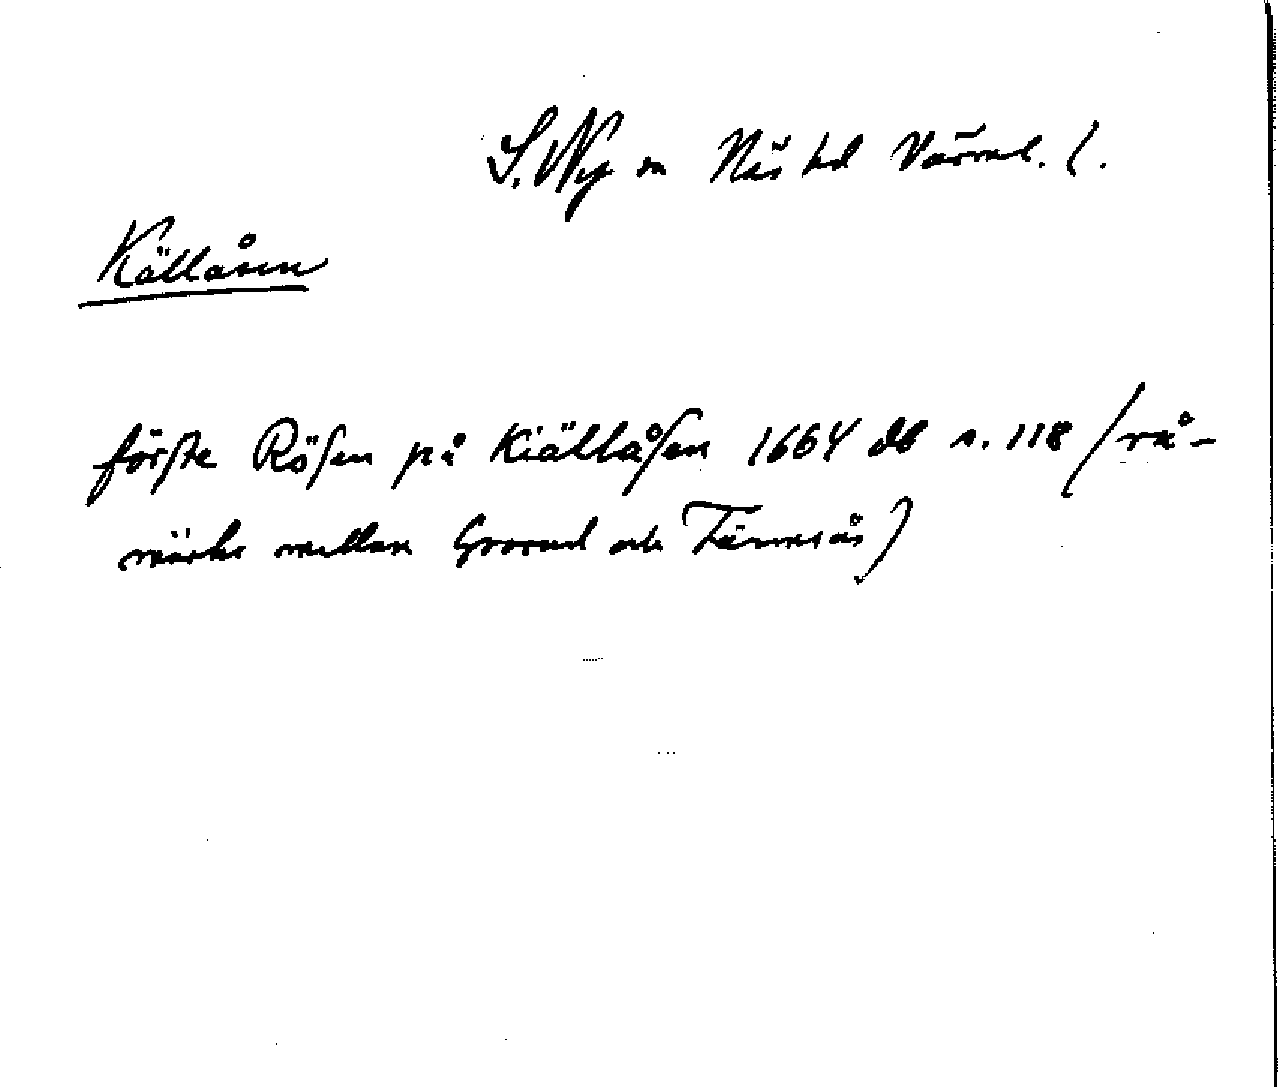 S. Ny sn Näs hd Värml. l.
Källåsen
förste Rösen på Kiällåsen 1664 db s. 118 (rå-
märke mellan Grorud och Tärnesås)